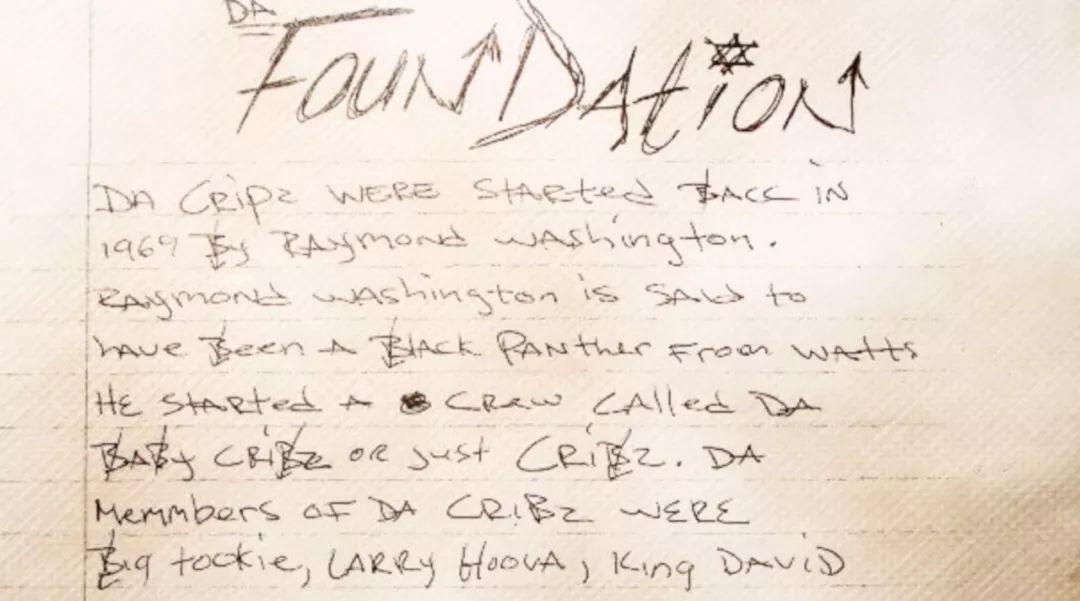 DA
FounDAtioN
DA Cripz WERE StARted BACC iN
1969 By RAymond WAshington.
RAymond WAshington is SAid to
hAve Been A BlACK PANther From WAtts
HE StARted A CREW CAlled DA
BABy CRiBz OR just CRiBz. DA
Memmbers OF DA CRiBz WERE
Big tookie, LARRy HOOVA, King DAViD